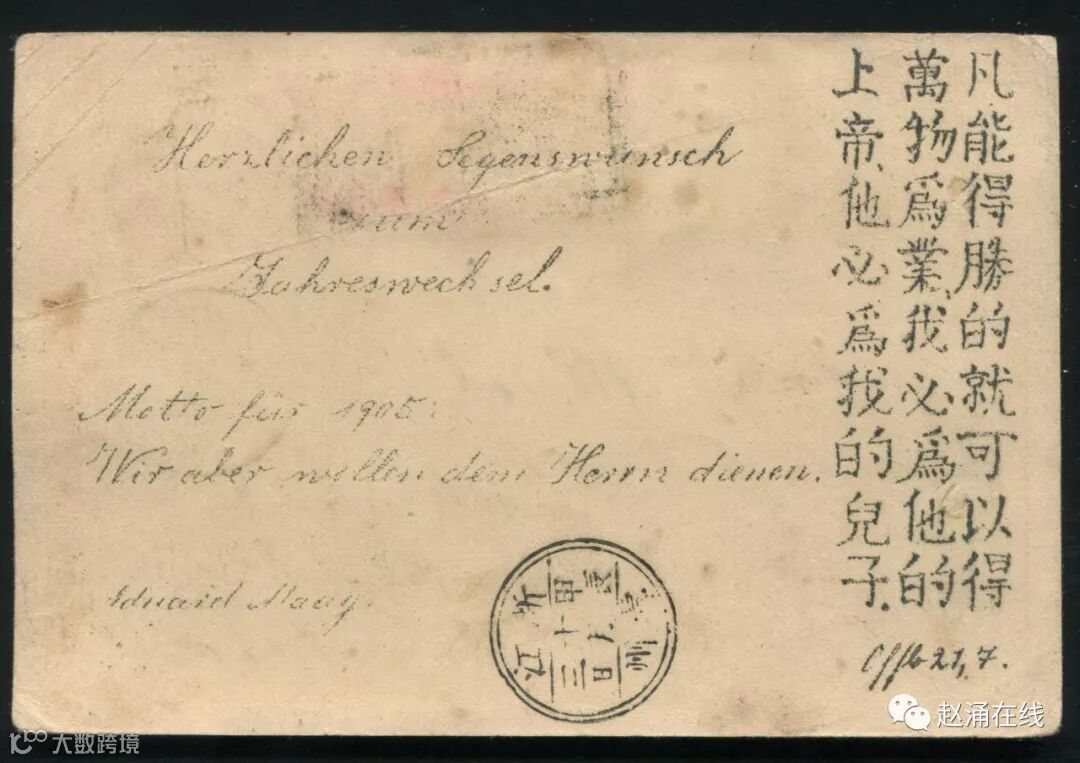 Herzlichen Segenswunsch
zum
Jahreswechsel.
Motto für 1905:
Wir aber wollen dem Herrn dienen.
Eduard Maag.
凡能得勝的就可以得
萬物爲業、我必爲他的
上帝、他必爲我的兒子.
Offb 21, 7.
浙江
甲辰
十
三日
州
赵涌在线
大数跨境